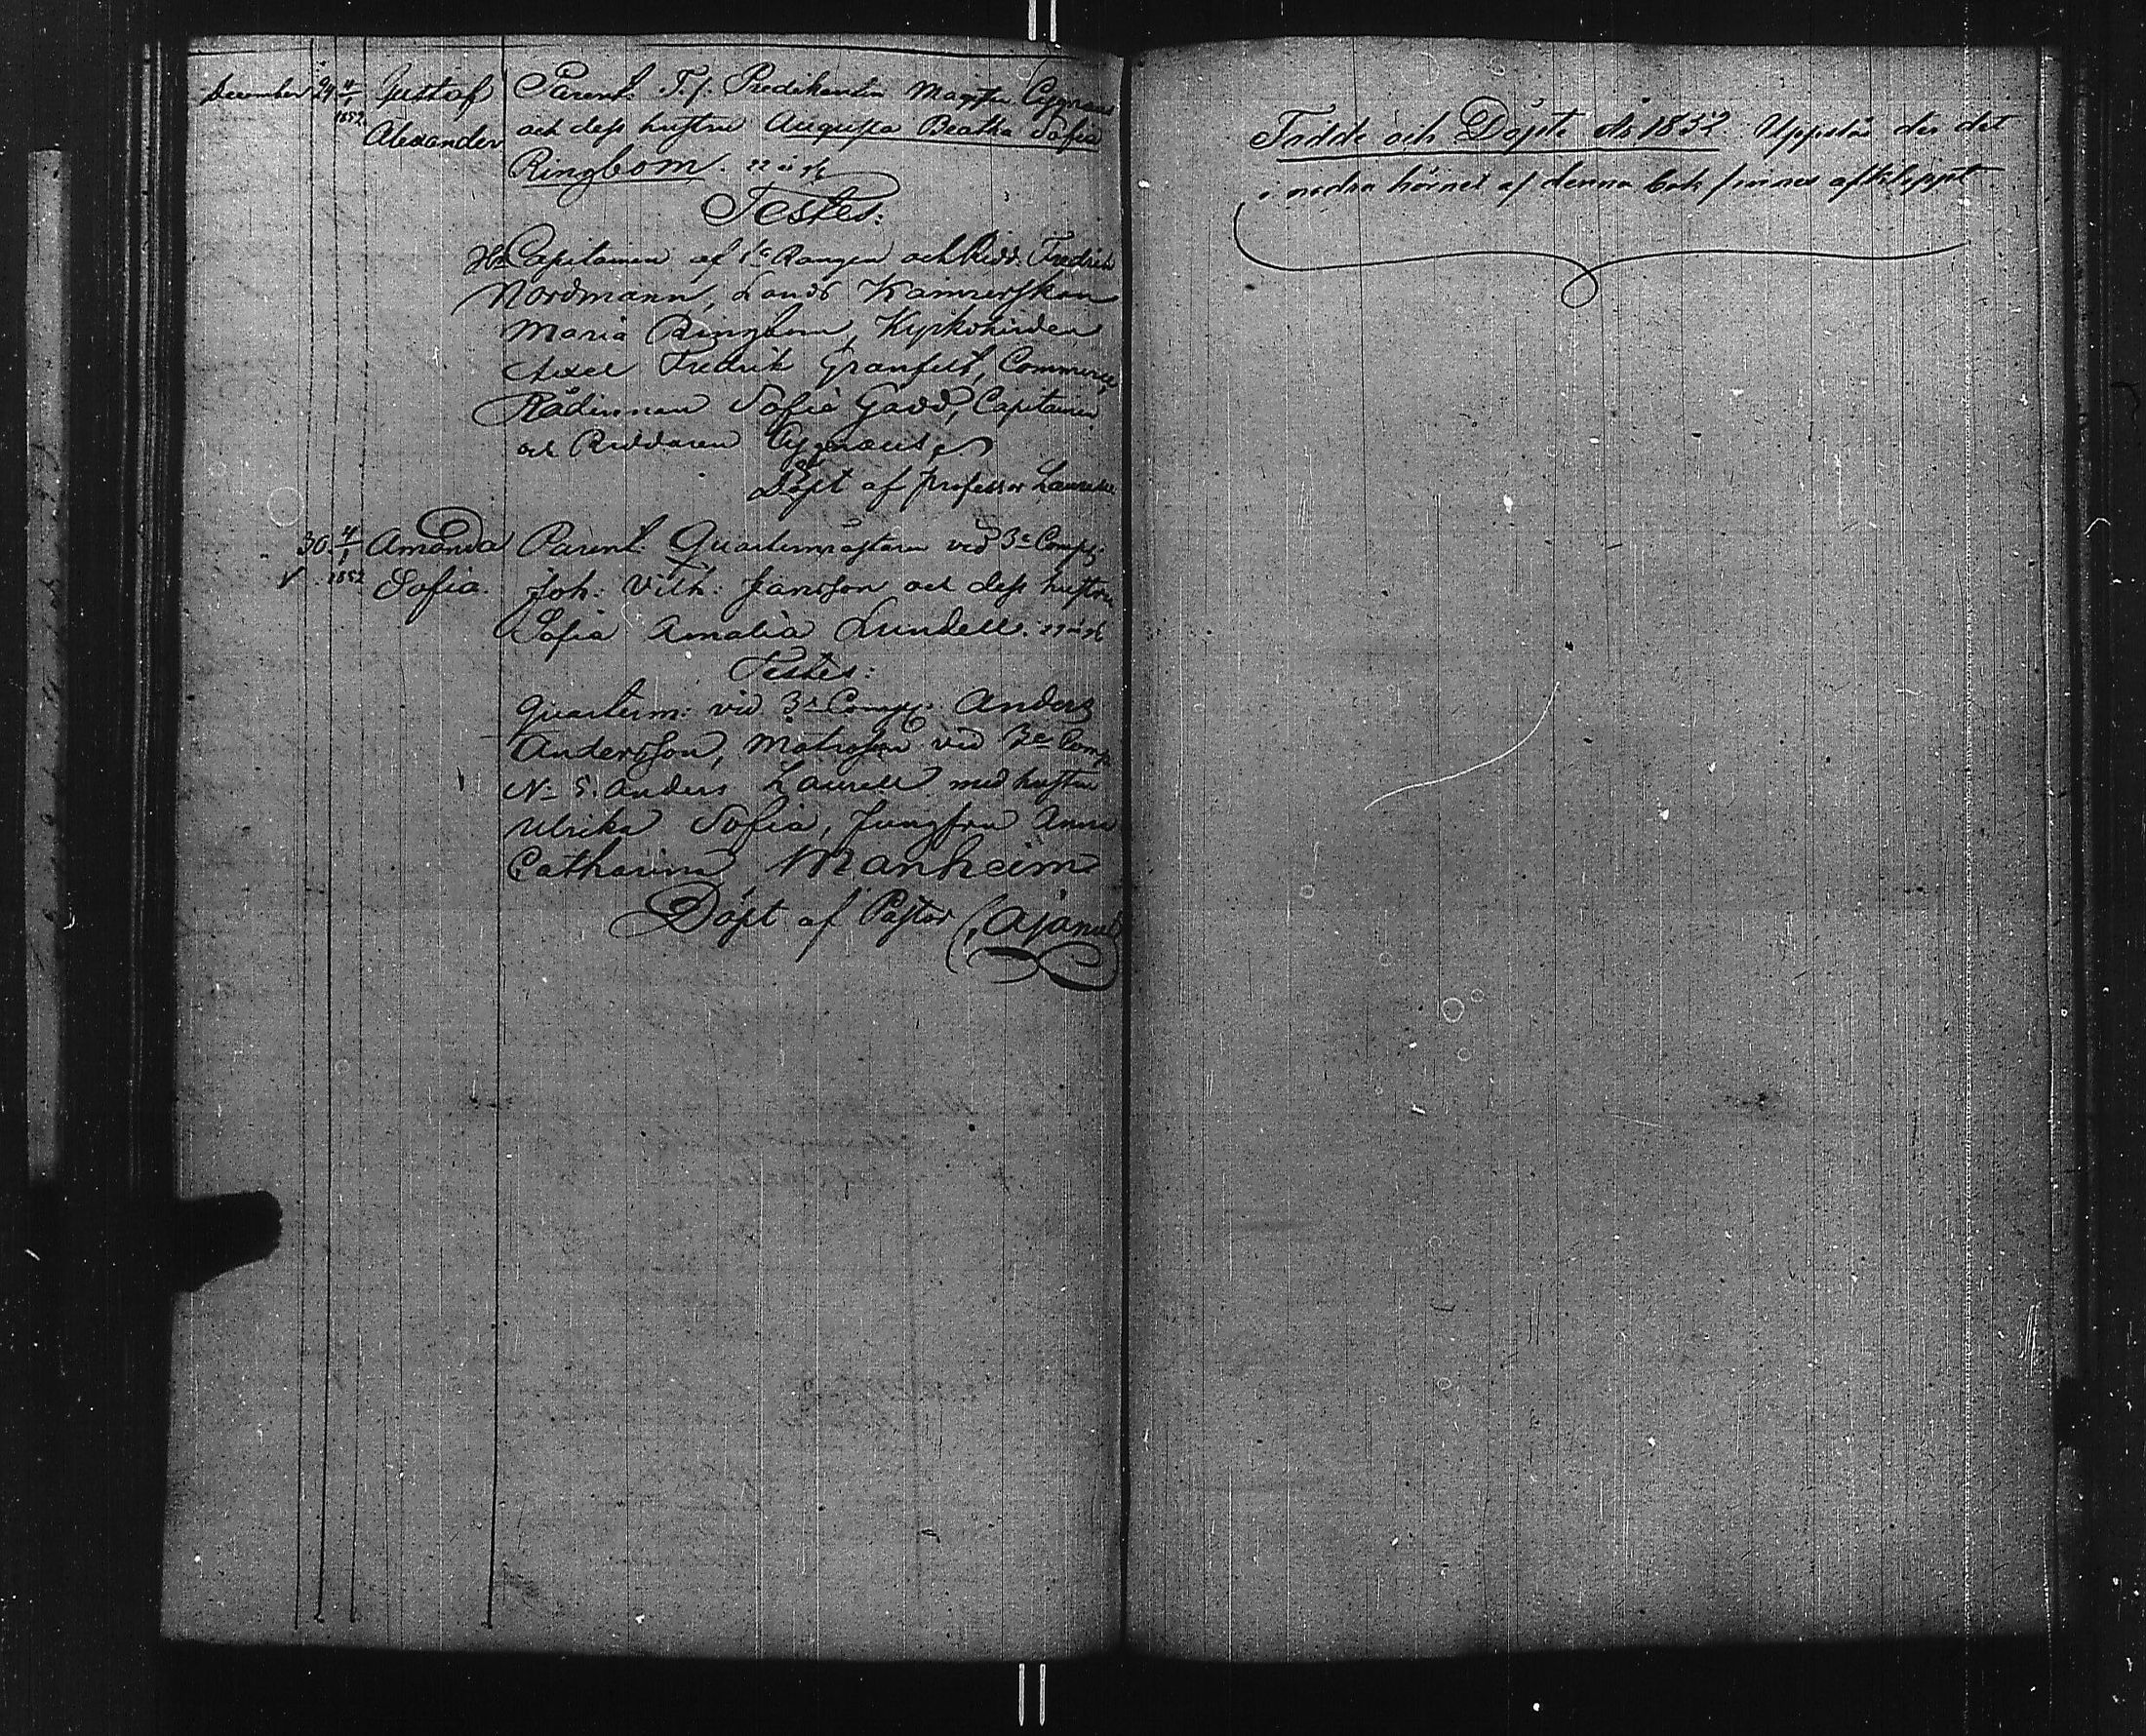 December 29 4/1 1852. Gustaf Alexander Parent: T. f. Predikanten Magister Cygnæus
och dess hustru Augusta Beatha Sofia
Ringbom. 22 år
Testes:
Capitainen af 1e Rangen och Ridd. Fredrik
Nordmann, Lands Kamrerskan
Maria Ringbom, Kyrkoherden
Axel Fredrik Granfelt, Commerce
Rådinnan Sofia Gadd, Capitainen
och Riddaren Cygnæus,
Döpt af Professor
30. 4/1 1852 Amanda Sofia. Parent: Quartermästaren vid 3e Comp:
Joh: Vilh: Jansson och dess hustru
Sofia Amalia Lundell.
Testes:
Quarterm: vid 3e Comp: Anders
Andersson, Matrosen vid 3e Comp
No 5. Anders Laurell med hustru
Ulrika Sofia, Jungfru Anna
Catharina Manheim
Döpt af Pastor Cajanus
Födde och Döpte År 1852. Uppslås der det
i nedra hörnet af denna bok finnes afklippt